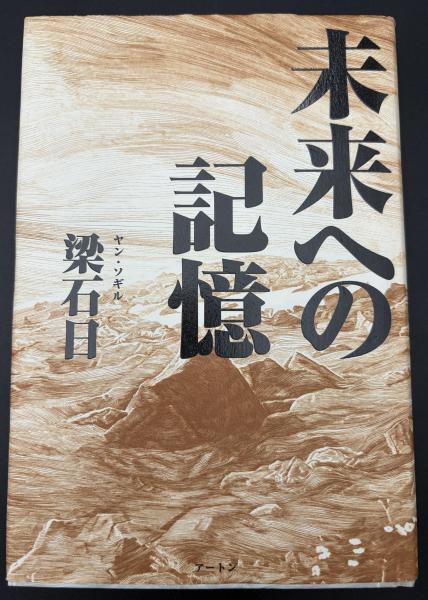 未来への
記憶
ヤン・ソギル
梁石日
アートン